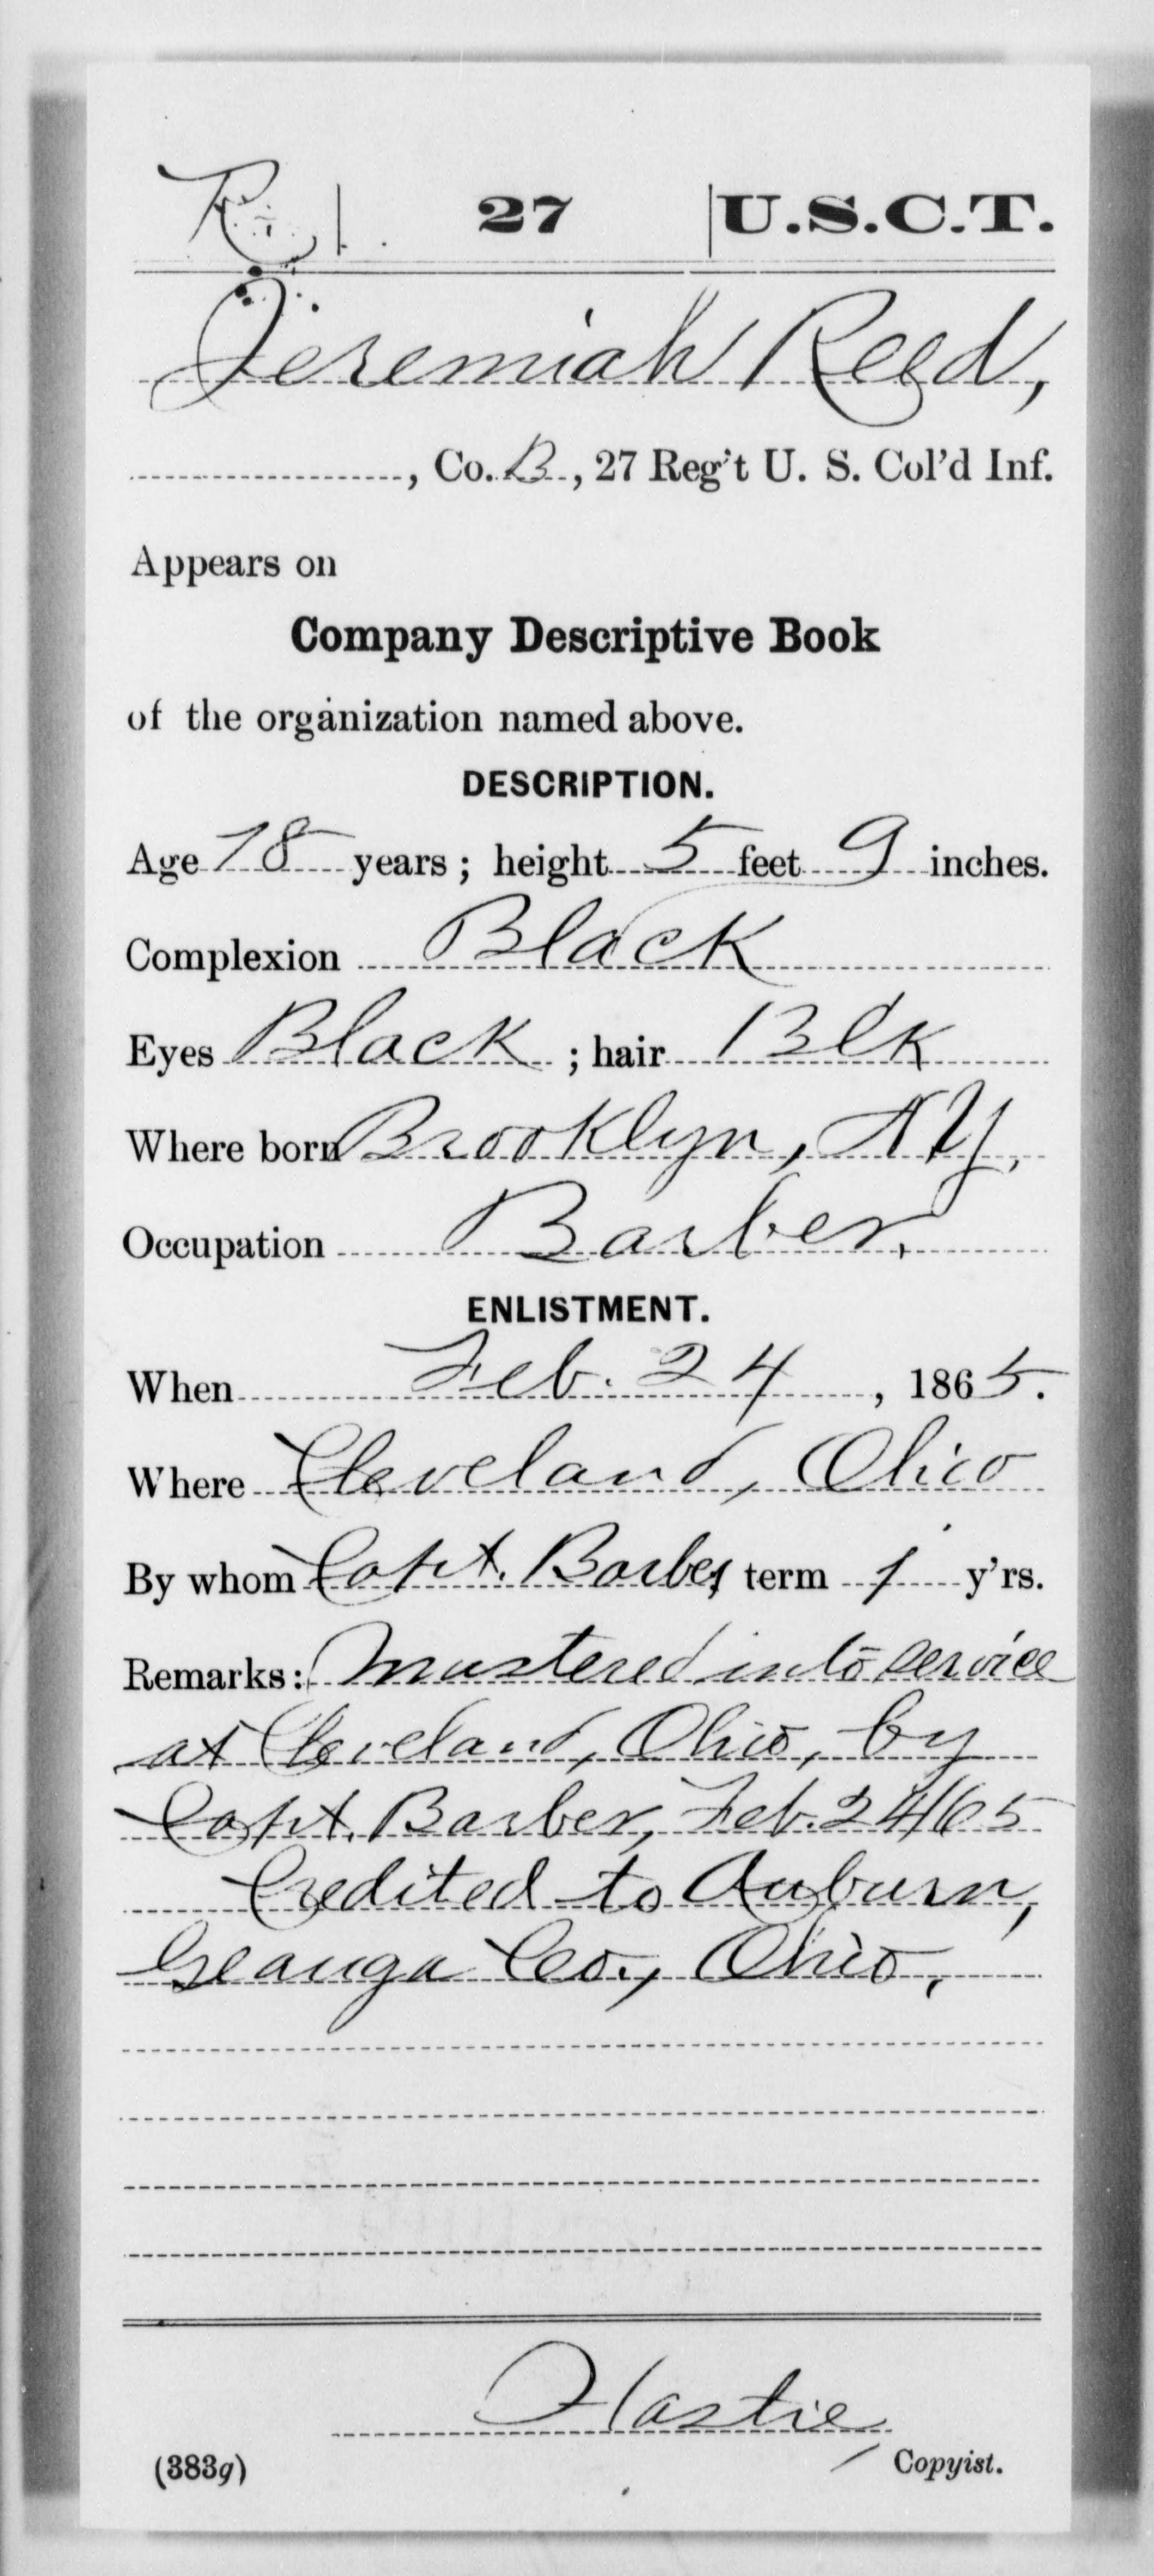 R | 27 | U.S.C.T.
Jeremiah Reed,
, Co. B, 27 Reg't U. S. Col'd Inf.
Appears on
Company Descriptive Book
of the organization named above.
DESCRIPTION.
Age 18 years; height 5 feet 9 inches.
Complexion Black
Eyes Black; hair Blk
Where born Brooklyn, NY,
Occupation Barber,
ENLISTMENT.
When Feb. 24, 1865.
Where Cleveland, Ohio
By whom Capt. Barber, term 1 y'rs.
Remarks: Mustered into service
at Cleveland, Ohio, by
Capt. Barber, Feb. 24/65
Credited to Auburn,
Geauga Co., Ohio,
Hastie
(383g) Copyist.